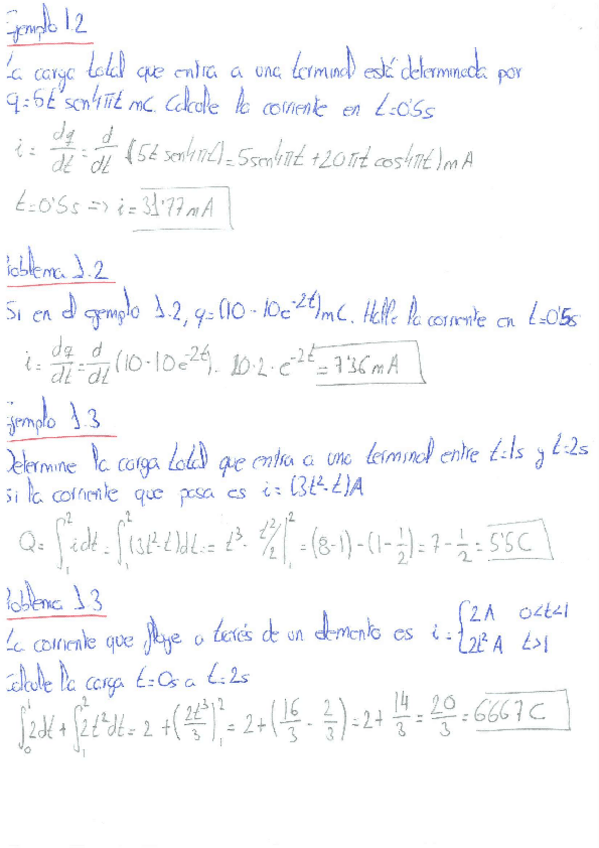 Ejemplo 1.2
La carga total que entra a una terminal está determinada por
q=5t sen4πt mC. Calcule la corriente en t=0'5s
i = dq/dt = d/dt (5t sen4πt) = 5sen4πt + 20πt cos4πt) mA
t=0'5s => i = 31'77mA
Problema 1.2
Si en el ejemplo 1.2, q=(10-10e^-2t)mC. Halle la corriente en t=0'5s
i = dq/dt = d/dt (10-10e^-2t). 10·2·e^-2t = 7'36mA
Ejemplo 1.3
Determine la carga total que entra a una terminal entre t=1s y t=2s
si la corriente que pasa es i=(3t²-t)A
Q= ∫₁² idt = ∫₁² (3t²-t)dt = t³- t²/2 |₁² = (8-1)-(1-1/2) = 7-1/2 = 5'5C
Problema 1.3
La corriente que fluye a través de un elemento es i= {2A 0<t<1
2t²A t>1
Calcule la carga t=0s a t=2s
∫₀¹ 2dt + ∫₁² 2t²dt = 2 + (2t³/3)₁² = 2+(16/3 - 2/3) = 2+ 14/3 = 20/3 = 6'667C